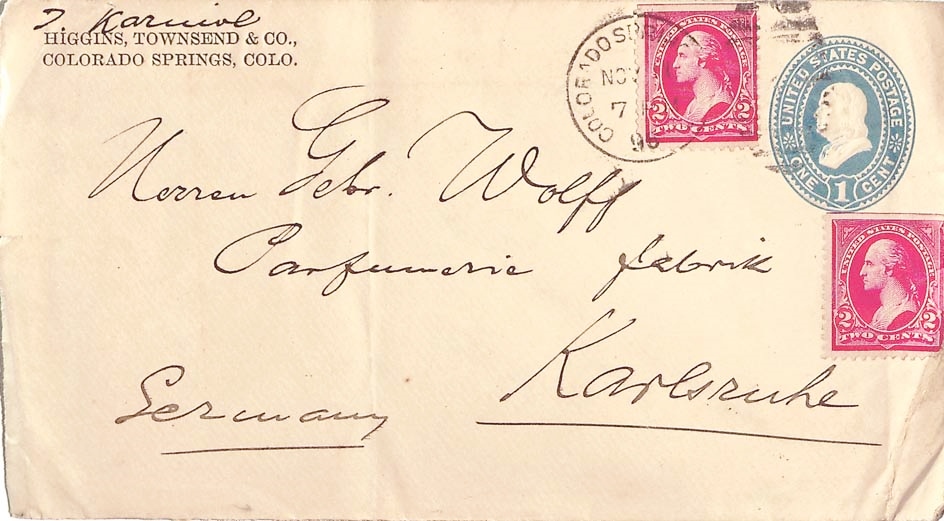 J. Karniol
HIGGINS, TOWNSEND & CO.,
COLORADO SPRINGS, COLO.
COLORADO SPR
NOV
7
UNITED STATES POSTAGE
2 2
TWO CENTS
UNITED STATES POSTAGE
ONE 1 CENT
Herren Gebr. Wolff
Parfumerie fabrik
Karlsruhe
Germany
UNITED STATES POSTAGE
2 2
TWO CENTS